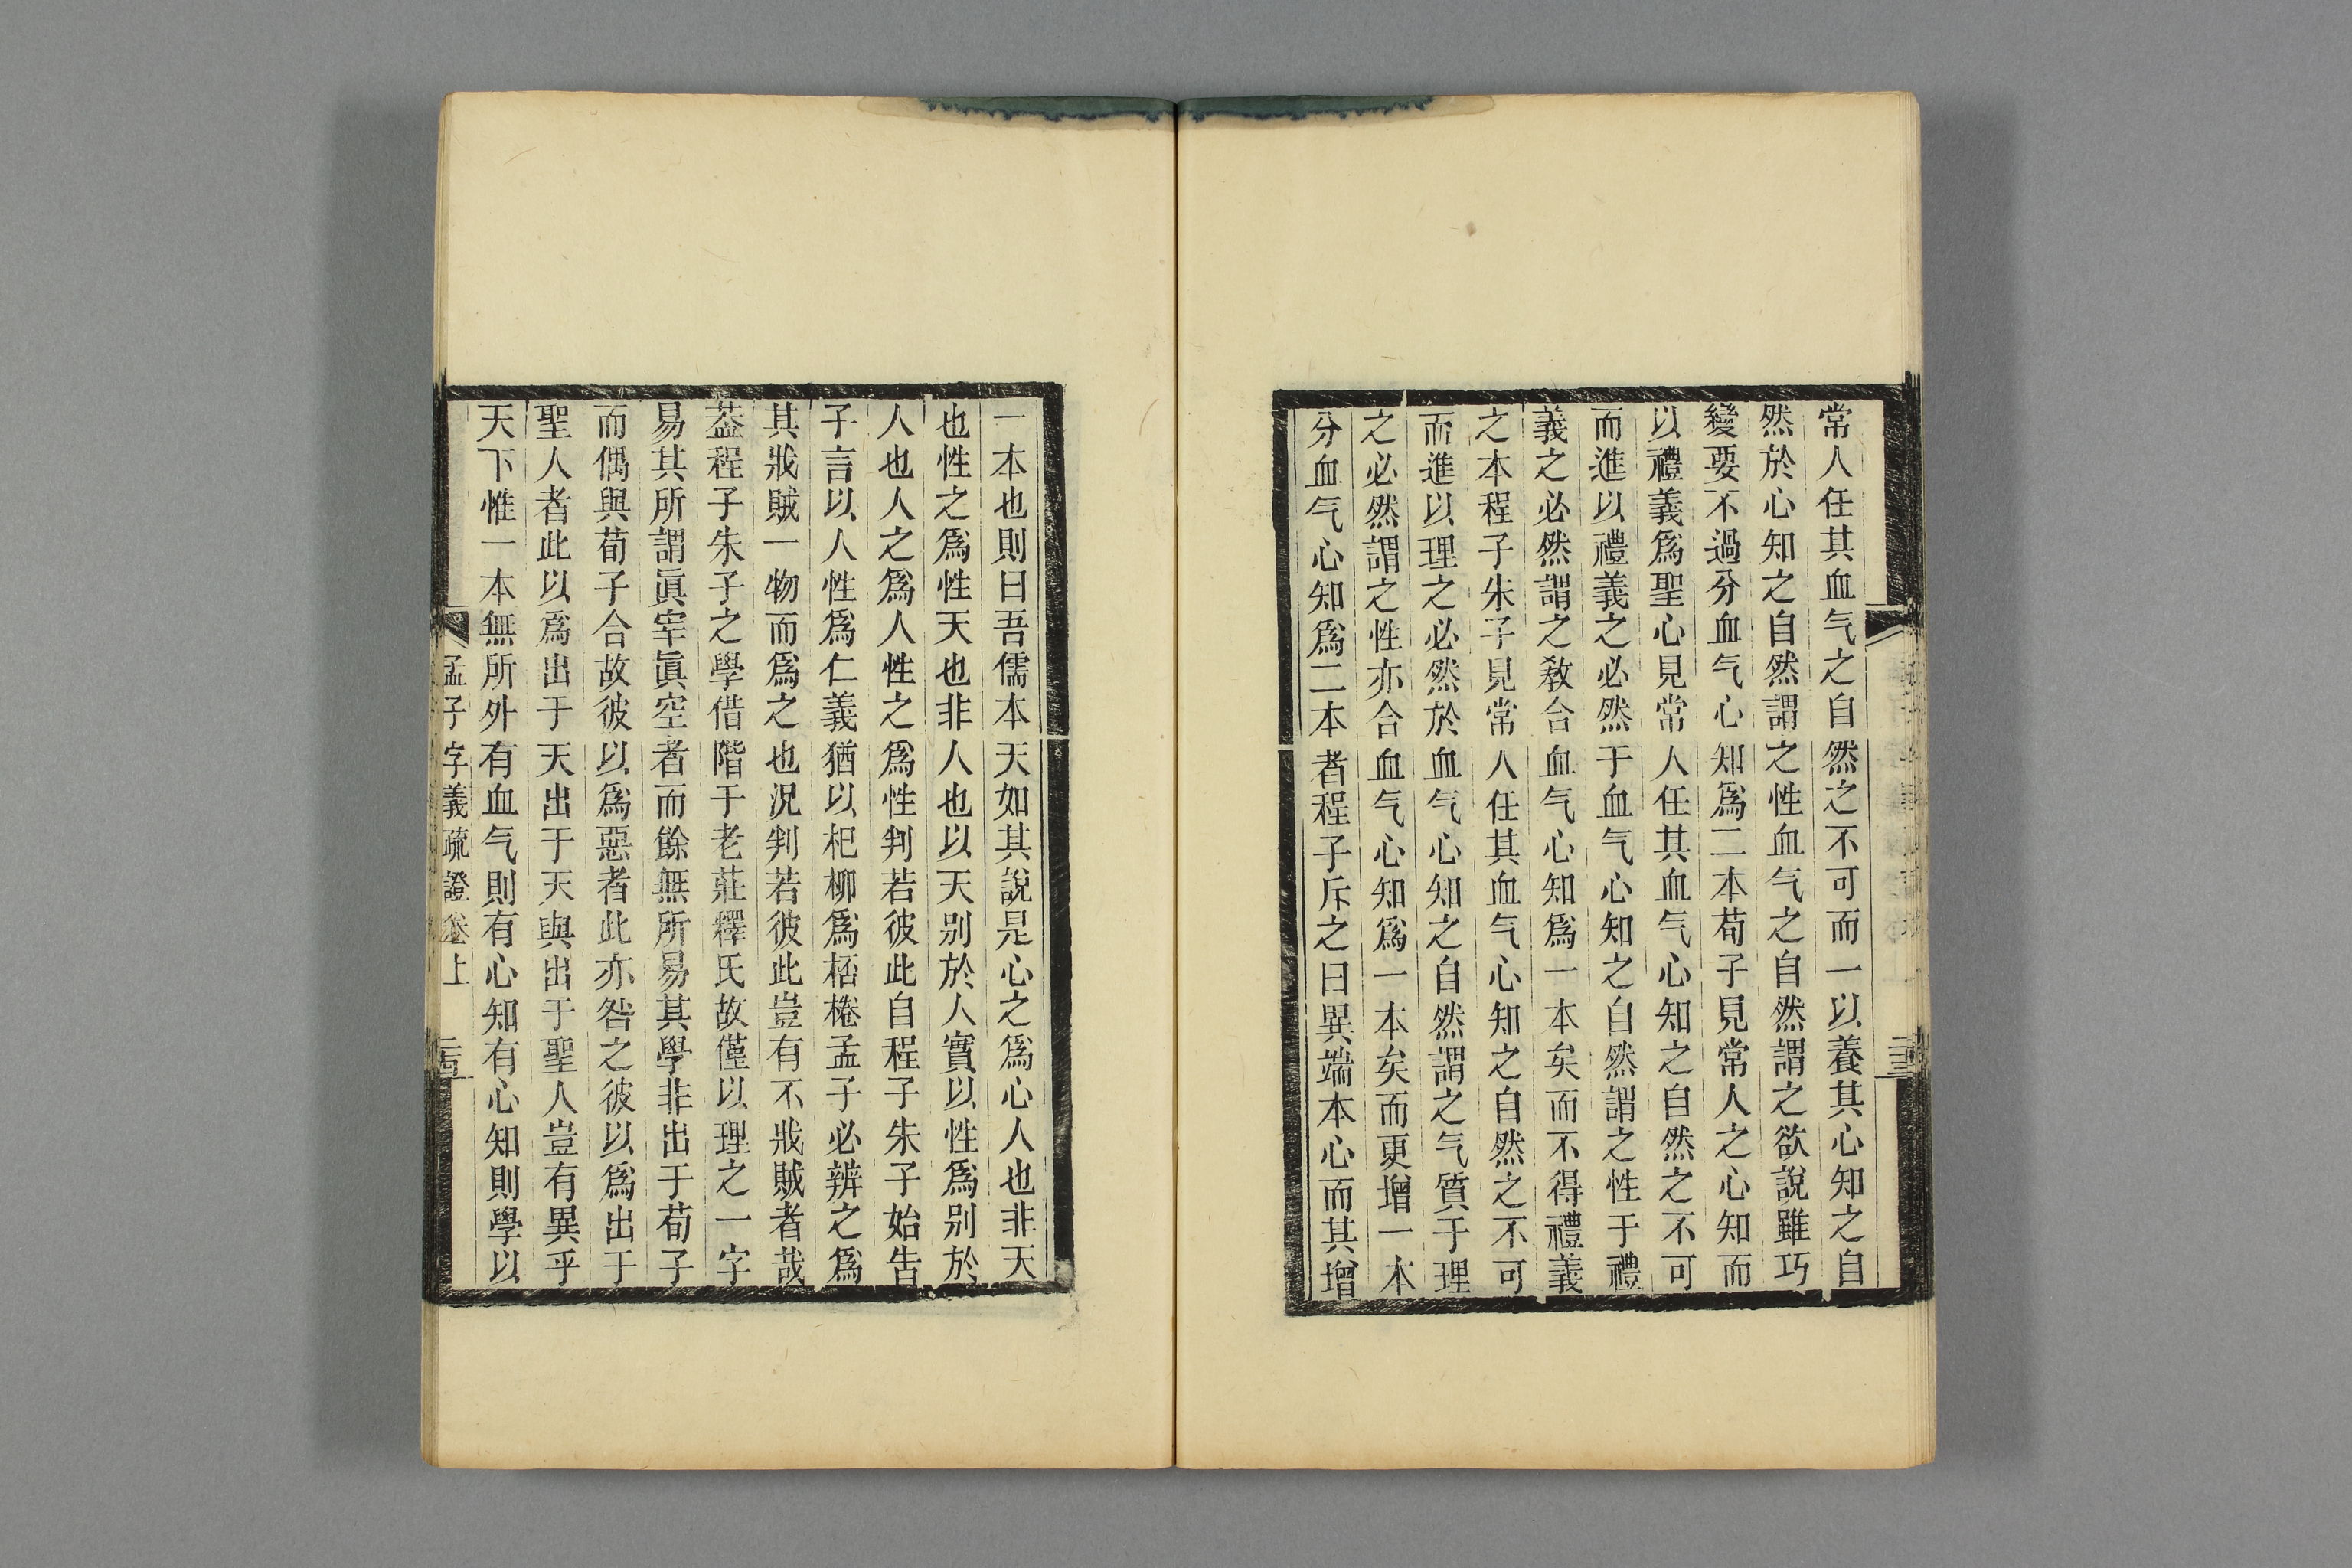 常人任其血气之自然之不可而一以養其心知之自
然於心知之自然謂之性血气之自然謂之欲說雖巧
變要不過分血气心知爲二本荀子見常人之心知而
以禮義爲聖心見常人任其血气心知之自然之不可
而進以禮義之必然于血气心知之自然謂之性于禮
義之必然謂之敎合血气心知爲一本矣而不得禮義
之本程子朱子見常人任其血气心知之自然之不可
而進以理之必然於血气心知之自然謂之气質于理
之必然謂之性亦合血气心知爲一本矣而更增一本
分血气心知爲二本者程子斥之曰異端本心而其增
一本也則曰吾儒本天如其說是心之爲心人也非天
也性之爲性天也非人也以天别於人實以性爲别於
人也人之爲人性之爲性判若彼此自程子朱子始告
子言以人性爲仁義猶以杞柳爲桮棬孟子必辨之爲
其戕賊一物而爲之也況判若彼此豈有不戕賊者哉
葢程子朱子之學借階于老莊釋氏故僅以理之一字
易其所謂眞宰眞空者而餘無所易其學非出于荀子
而偶與荀子合故彼以爲惡者此亦咎之彼以爲出于
聖人者此以爲出于天出于天與出于聖人豈有異乎
天下惟一本無所外有血气則有心知有心知則學以
孟子字義疏證卷上